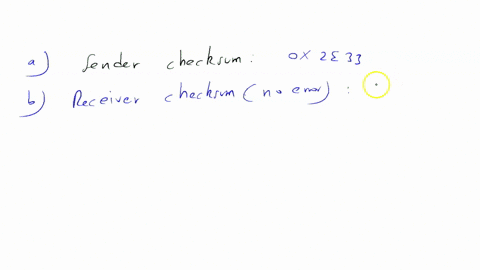 a) Sender checksum: 0x 2E33
b) Receiver checksum (no error) :